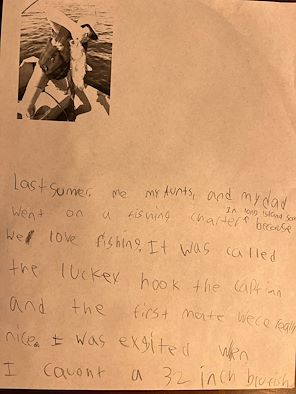 Last sumer, me my Aunts, and my dad
In long island son
went on a fishing charter because
We love fishing. It was called
the luckey hook the captian
and the first mate were really
nice. I was exsited when
I cavont a 32 inch blufish